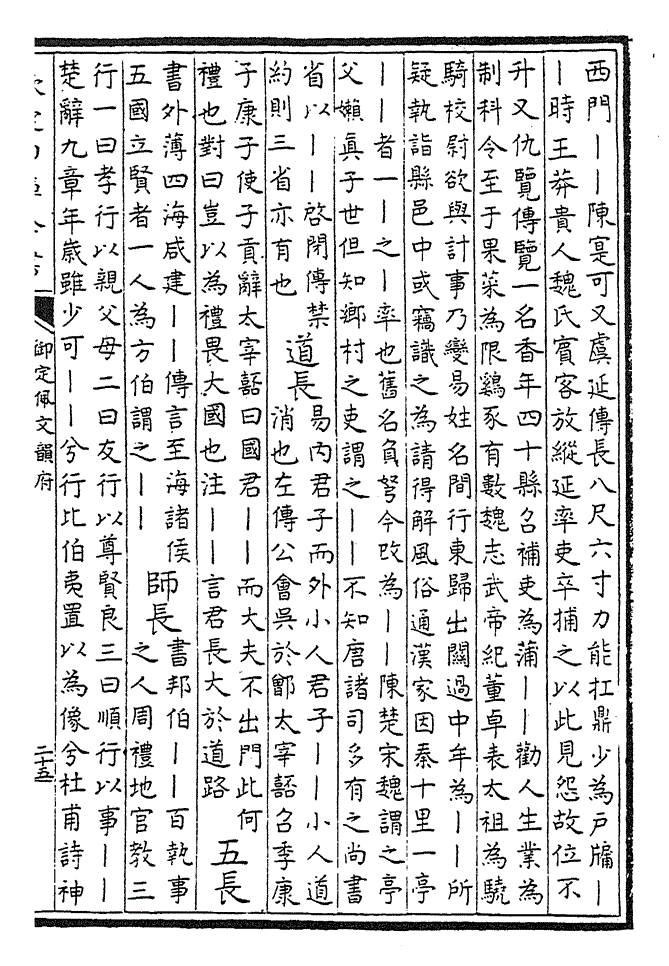 西門｜｜陳寔可又虞延傳長八尺六寸力能扛鼎少為戸牖｜
｜時王莽貴人魏氏賓客放縱延率吏卒捕之以此見怨故位不
升又仇覽傳覽一名香年四十縣召補吏為蒲｜｜勸人生業為
制科令至于果菜為限鷄豕有數魏志武帝紀董卓表太祖為驍
騎校尉欲與計事乃變易姓名間行東歸出關過中牟為｜｜所
疑執詣縣邑中或竊識之為請得解風俗通漢家因秦十里一亭
｜｜者一｜之｜率也舊名負弩今改為｜｜陳楚宋魏謂之亭
父嬾真子世但知鄉村之吏謂之｜｜不知唐諸司多有之尚書
省以｜｜啓閉傳禁
約則三省亦有也
道長
易內君子而外小人君子｜｜小人道
消也左傳公會吳於鄫太宰嚭召季康
子康子使子貢辭太宰嚭曰國君｜｜而大夫不出門此何
禮也對曰豈以為禮畏大國也注｜｜言君長大於道路
五長
書外薄四海咸建｜｜傳言至海諸侯
五國立賢者一人為方伯謂之｜｜
師長
書邦伯｜｜百執事
之人周禮地官教三
行一曰孝行以親父母二曰友行以尊賢良三曰順行以事｜｜
楚辭九章年歲雖少可｜｜兮行比伯夷置以為像兮杜甫詩神
御定佩文韻府
二十五